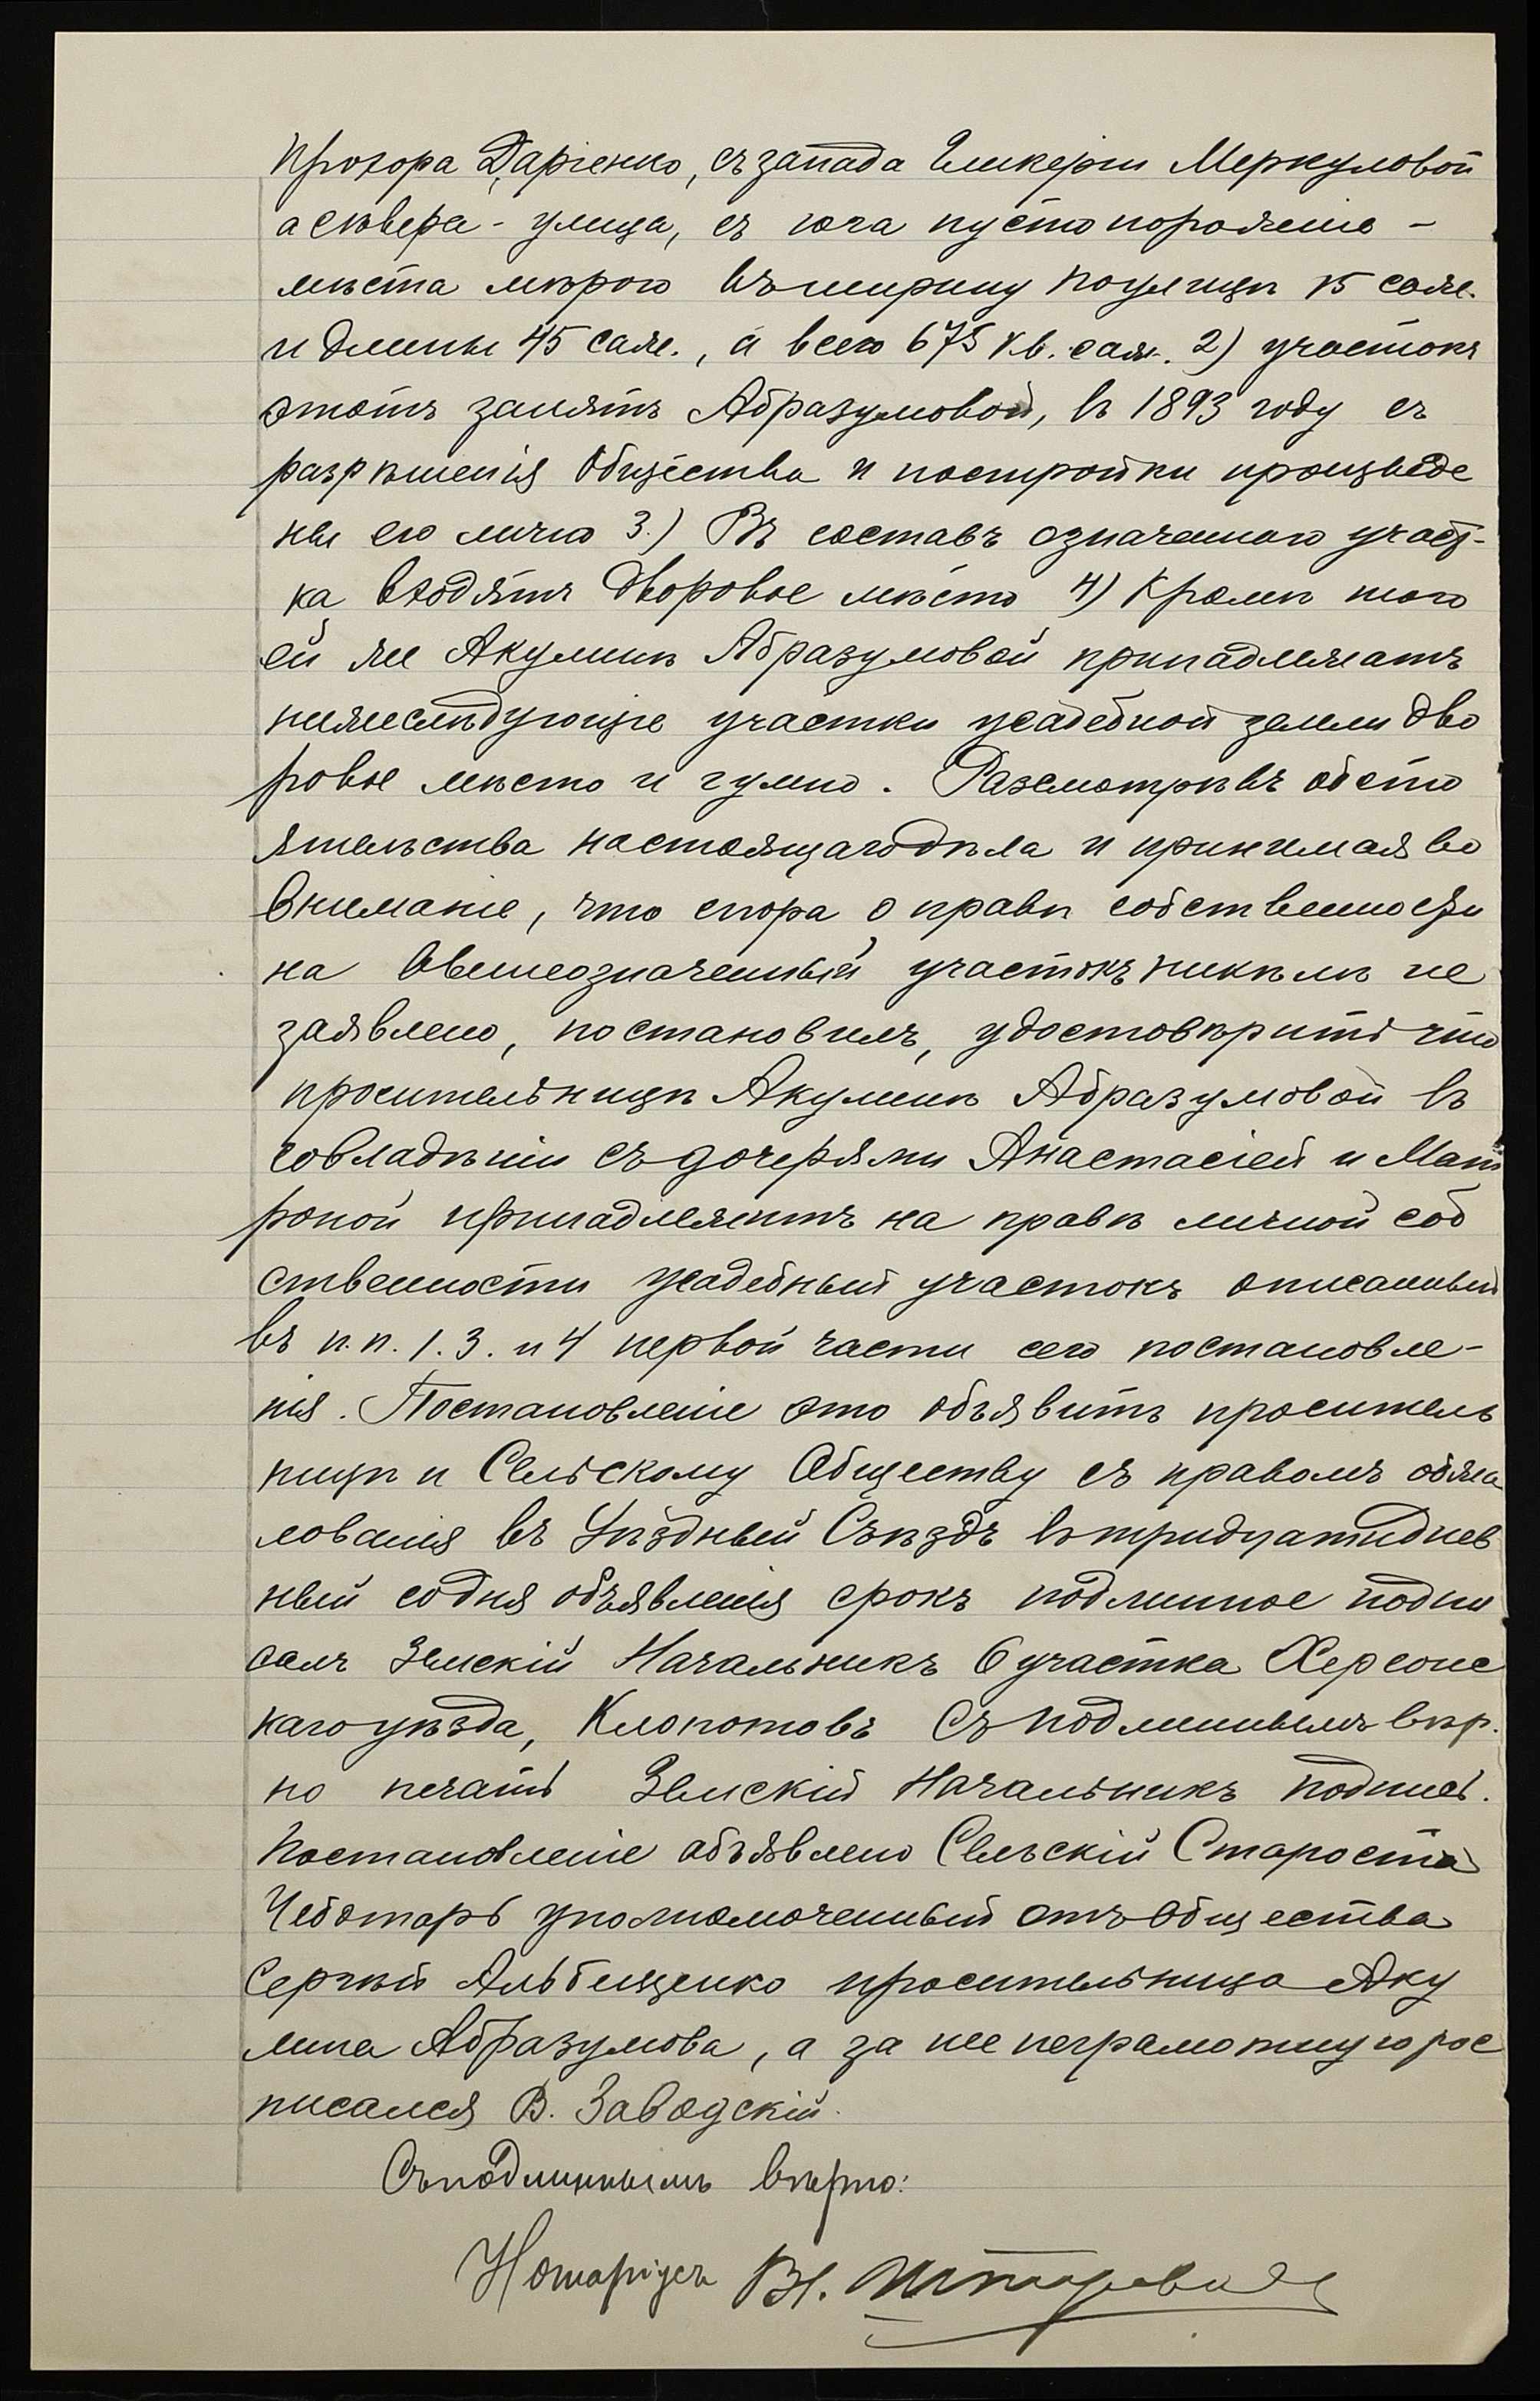 Прохора Даріенко, съ запада Гликеріи Меркуловой
а сѣвера - улица, съ юга пустопорожніе -
мѣста мѣрою въ ширину по улицѣ 15 саж.
и длины 45 саж., а всего 675 кв. саж. 2) участокъ
этотъ занятъ Абразумовой, въ 1893 году съ
разрѣшенія Общества и постройки произведе
ны ею лично 3.) Въ составъ означеннаго участ-
ка входятъ дворовое мѣсто 4) Кромѣ того
ей же Акулинѣ Абразумовой принадлежатъ
нижеслѣдующіе участки усадебной земли дво
ровое мѣсто и гумно. Разсмотрѣвъ обсто
ятельства настоящаго дѣла и принимая во
вниманіе, что спора о правѣ собственности
на вышеозначенный участокъ никѣмъ не
заявлено, постановилъ, удостовѣрить что
просительницѣ Акулинѣ Абразумовой въ
совладѣніи съ дочерями Анастасіей и Мат
роной принадлежитъ на правѣ личной соб
ственности усадебный участокъ описанный
въ п.п. 1. 3. и 4 первой части сего постановле-
нія. Постановленіе это объявить проситель
ницѣ и Сельскому Обществу съ правомъ обжа
лованія въ Уѣздный Съѣздъ въ тридцатиднев
ный со дня объявленія срокъ подлинное подпи
салъ Земскій Начальникъ 6 участка Херсонс
каго уѣзда, Клопотовъ Съ подлиннымъ вѣр.
но печать Земскій Начальникъ подпись.
Постановленіе объявлено Сельскій Староста
Чеботарь уполномоченный отъ Общества
Сергѣй Альбищенко просительница Аку
лина Абразумова, а за нее неграмотную рос
писался В. Заводскій.
Съ подлиннымъ вѣрно:
Нотаріусъ Вл.